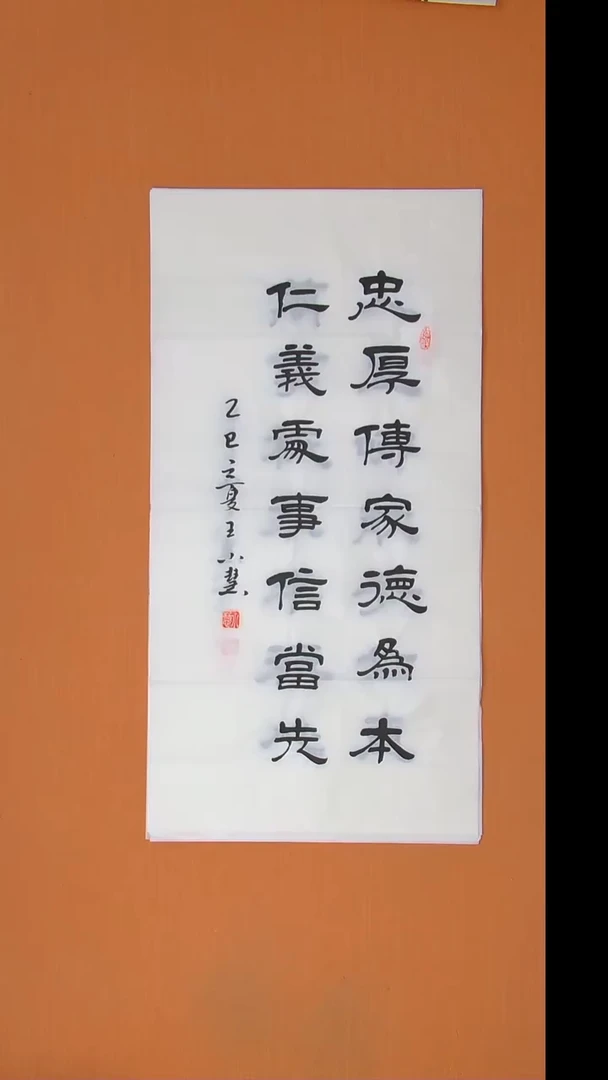 忠厚傳家德為本
仁義處事信當先
乙巳之夏王小慧